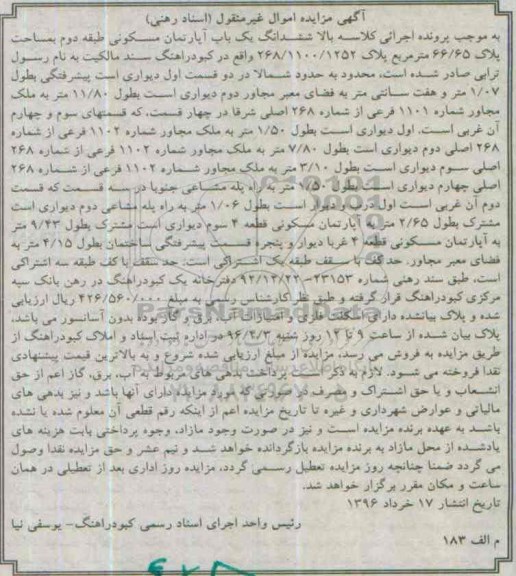 آگهی مزایده اموال غیرمنقول (اسناد رهنی)
به موجب پرونده اجرائی کلاسه بالا ششدانگ یک باب آپارتمان مسکونی طبقه دوم بمساحت
پلاک ۶۶/۶۵ مترمربع پلاک ۲۶۸/۱۱۰۰/۱۲۵۲ واقع در کبودراهنگ سند مالکیت به نام رسول
ترابی صادر شده است، محدود به حدود شمالا در دو قسمت اول دیواری است پیشرفتگی بطول
۱/۰۷ متر و هفت سانتی متر به فضای معبر مجاور دوم دیواری است بطول ۱۱/۸۰ متر به ملک
مجاور شماره ۱۱۰۱ فرعی از شماره ۲۶۸ اصلی شرقا در چهار قسمت، که قسمتهای سوم و چهارم
آن غربی است. اول دیواری است بطول ۱/۵۰ متر به ملک مجاور شماره ۱۱۰۲ فرعی از شماره
۲۶۸ اصلی دوم دیواری است بطول ۷/۸۰ متر به ملک مجاور شماره ۱۱۰۲ فرعی از شماره ۲۶۸
اصلی سوم دیواری است بطول ۳/۱۰ متر به ملک مجاور شماره ۱۱۰۲ فرعی از شماره ۲۶۸
اصلی چهارم دیواری است بطول ۷/۵۰ متر به راه پله مشاعی جنوبا در سه قسمت که قسمت
دوم آن غربی است اول دیوار است بطول ۱/۰۶ متر به راه پله مشاعی دوم دیواری است
مشترک بطول ۲/۶۵ متر به آپارتمان مسکونی قطعه ۴ سوم دیواری است مشترک بطول ۹/۴۳ متر
به آپارتمان مسکونی قطعه ۴ غربا دیوار و پنجره قسمت پیشرفتگی ساختمان بطول ۴/۱۵ متر به
فضای معبر مجاور. حد کف با سقف طبقه یک اشتراکی است: حد سقف با کف طبقه سه اشتراکی
است، طبق سند رهنی شماره ۲۳۱۵۳-۹۲/۱۲/۲۲ دفترخانه یک کبودراهنگ در رهن بانک سپه
مرکزی کبودراهنگ قرار گرفته و طبق نظر کارشناس رسمی به مبلغ ۴۲۶/۵۶۰/۰۰۰ ریال ارزیابی
شده و پلاک بیانشده دارای اسکلت فلزی و امتیازات آب، برق و گاز بوده بدون آسانسور می باشد.
پلاک بیان شده از ساعت ۹ تا ۱۲ روز شنبه ۹۶/۴/۳ در اداره ثبت اسناد و املاک کبودراهنگ از
طریق مزایده به فروش می رسد، مزایده از مبلغ ارزیابی شده شروع و به بالاترین قیمت پیشنهادی
نقدا فروخته می شود. لازم به ذکر است پرداخت بدهی های مربوط به آب، برق، گاز اعم از حق
انشعاب و یا حق اشتراک و مصرف در صورتی که مورد مزایده دارای آنها باشد و نیز بدهی های
مالیاتی و عوارض شهرداری و غیره تا تاریخ مزایده اعم از اینکه رقم قطعی آن معلوم شده یا نشده
باشد به عهده برنده مزایده است و نیز در صورت وجود مازاد، وجوه پرداختی بابت هزینه های
یادشده از محل مازاد به برنده مزایده بازگردانده خواهد شد و نیم عشر و حق مزایده نقدا وصول
می گردد ضمنا چنانچه روز مزایده تعطیل رسمی گردد، مزایده روز اداری بعد از تعطیلی در همان
ساعت و مکان مقرر برگزار خواهد شد.
تاریخ انتشار ۱۷ خرداد ۱۳۹۶
رئیس واحد اجرای اسناد رسمی کبودراهنگ- یوسفی نیا
م الف ۱۸۳